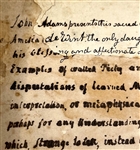 John Adams presents this sacred
America
his Blessing and affectionate
Examples of exalted Piety an
Disquisitions of learned M
interpretation, or metaphysica
pathies for any Understanding
which Strange to tell, instead